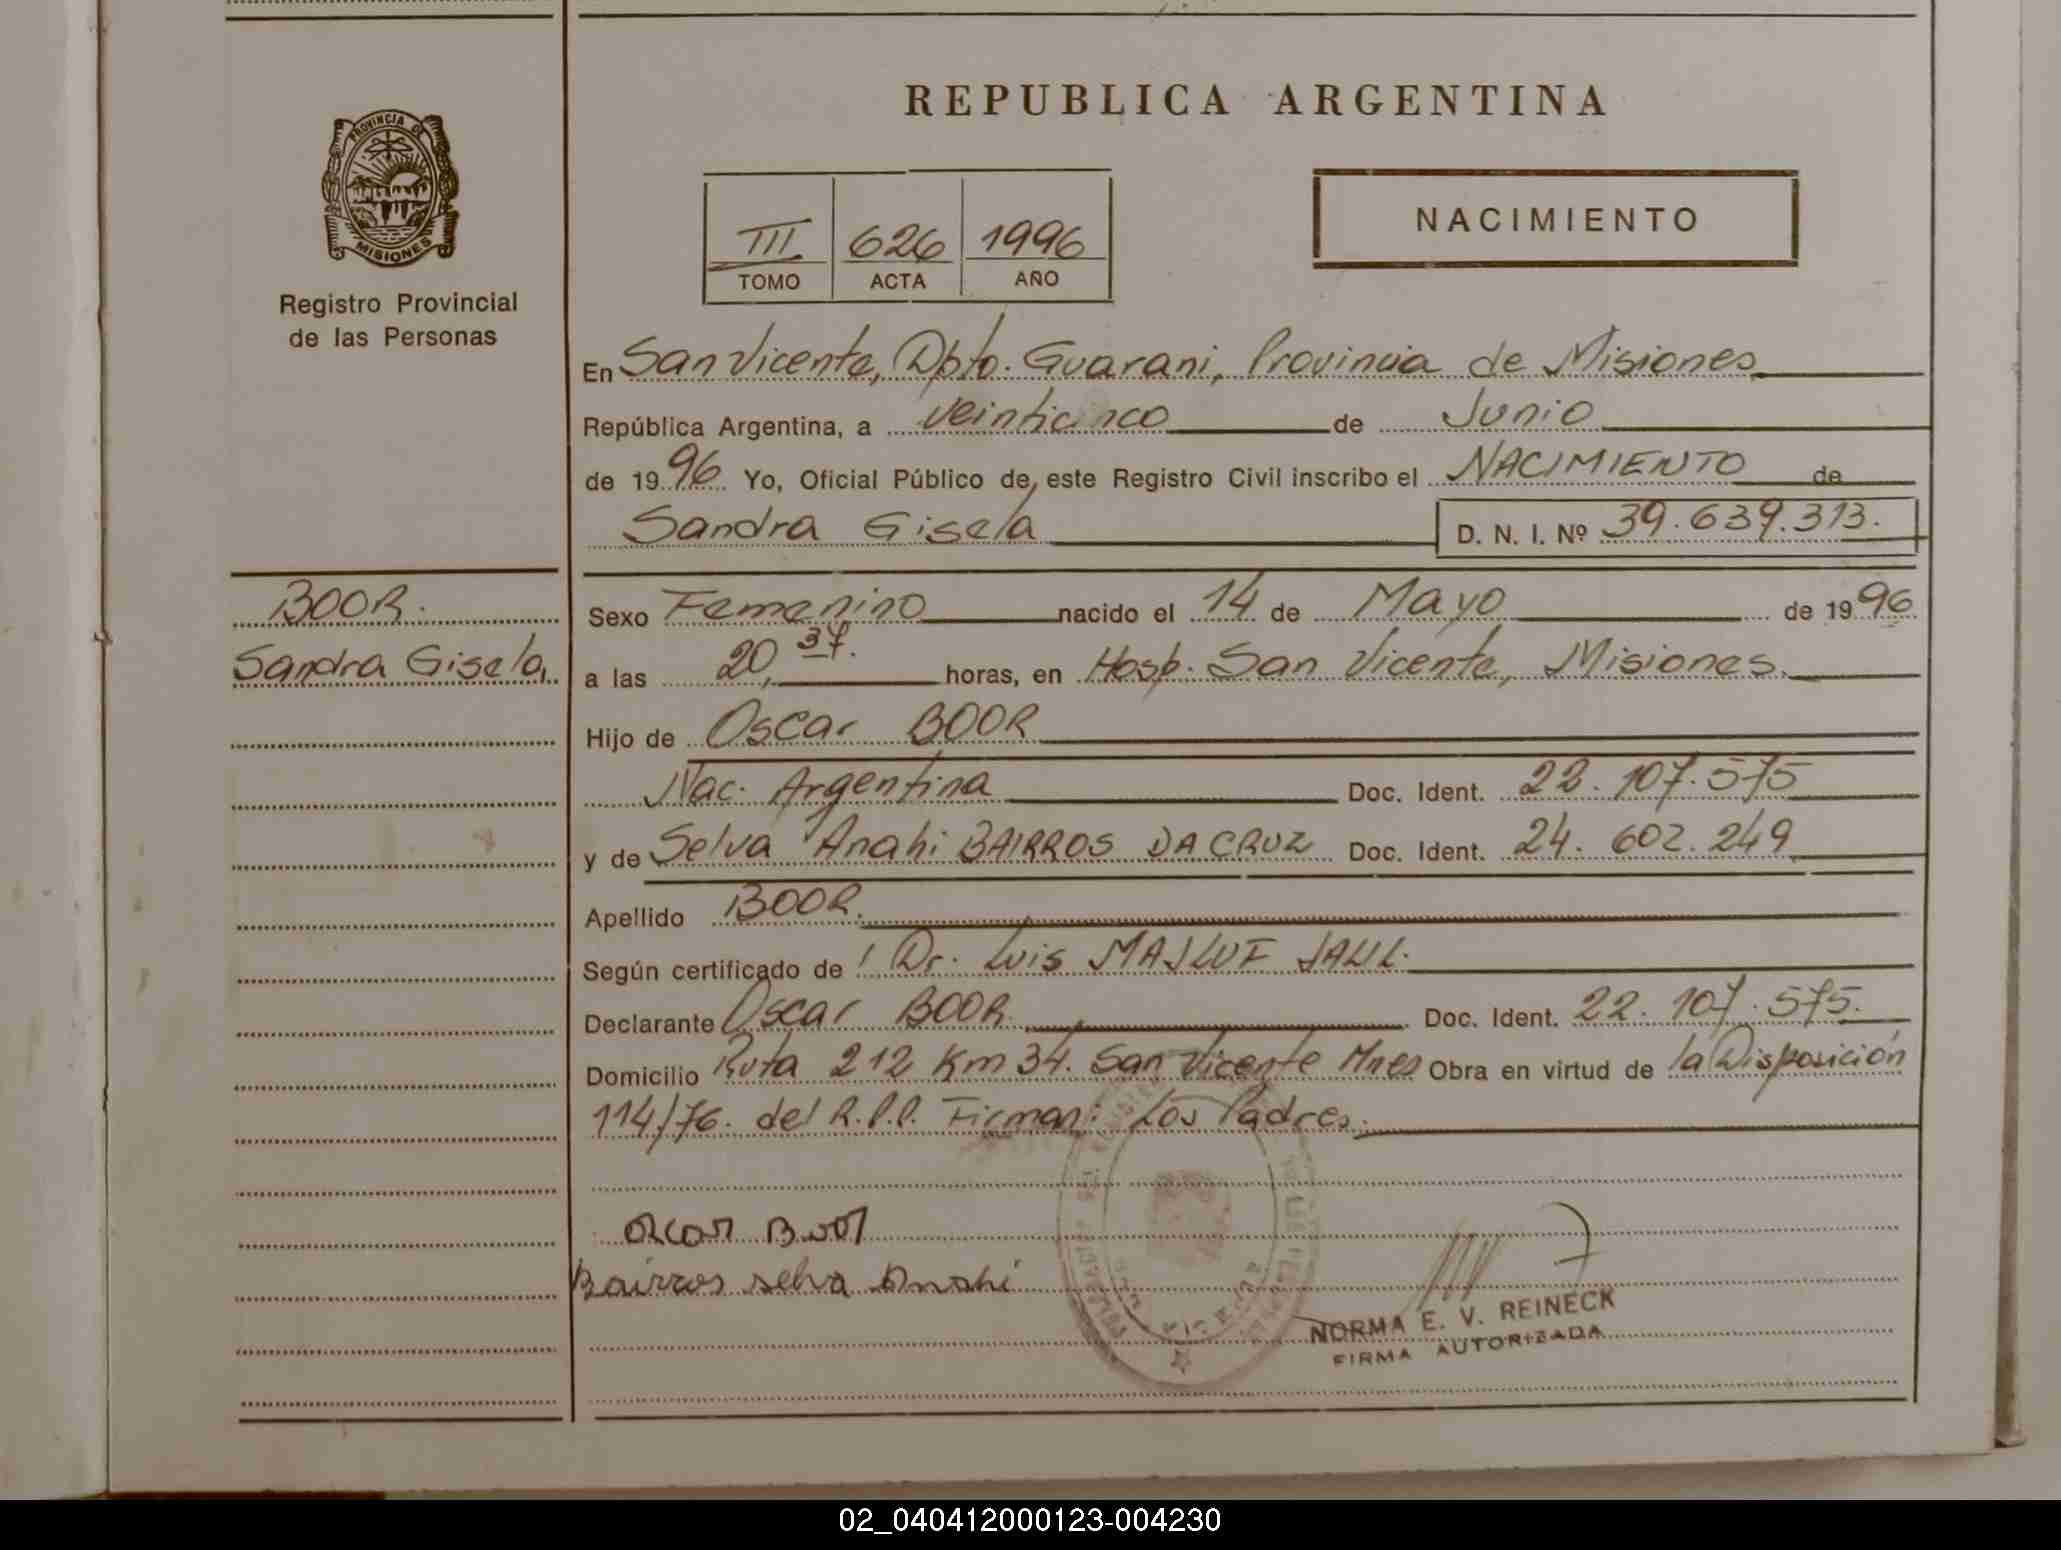 REPUBLICA ARGENTINA
PROVINCIA DE
MISIONES
Registro Provincial
de las Personas
III 626 1996
TOMO ACTA AÑO
NACIMIENTO
En San Vicente, Dpto. Guarani, Provincia de Misiones
República Argentina, a veinticinco de Junio
de 1996 Yo, Oficial Público de este Registro Civil inscribo el NACIMIENTO de
Sandra Gisela D. N. I. Nº 39.639.313.
BOOR.
Sandra Gisela
Sexo Femenino nacido el 14 de Mayo de 1996
a las 20,37. horas, en Hosp. San Vicente, Misiones.
Hijo de Oscar BOOR
Nac. Argentina Doc. Ident. 22.107.575
y de Selva Anahi BAIRROS DA CRUZ Doc. Ident. 24.602.249
Apellido BOOR.
Según certificado de Dr. Luis MAJLUF JALIL.
Declarante Oscar BOOR. Doc. Ident. 22.107.575.
Domicilio Ruta 212 Km 34. San Vicente Mnes Obra en virtud de la Disposición
114/76. del R.P.P. Firman: Los Padres.
Oscar Boor
Bairros selva Anahi
NORMA E. V. REINECK
FIRMA AUTORIZADA
02_040412000123-004230